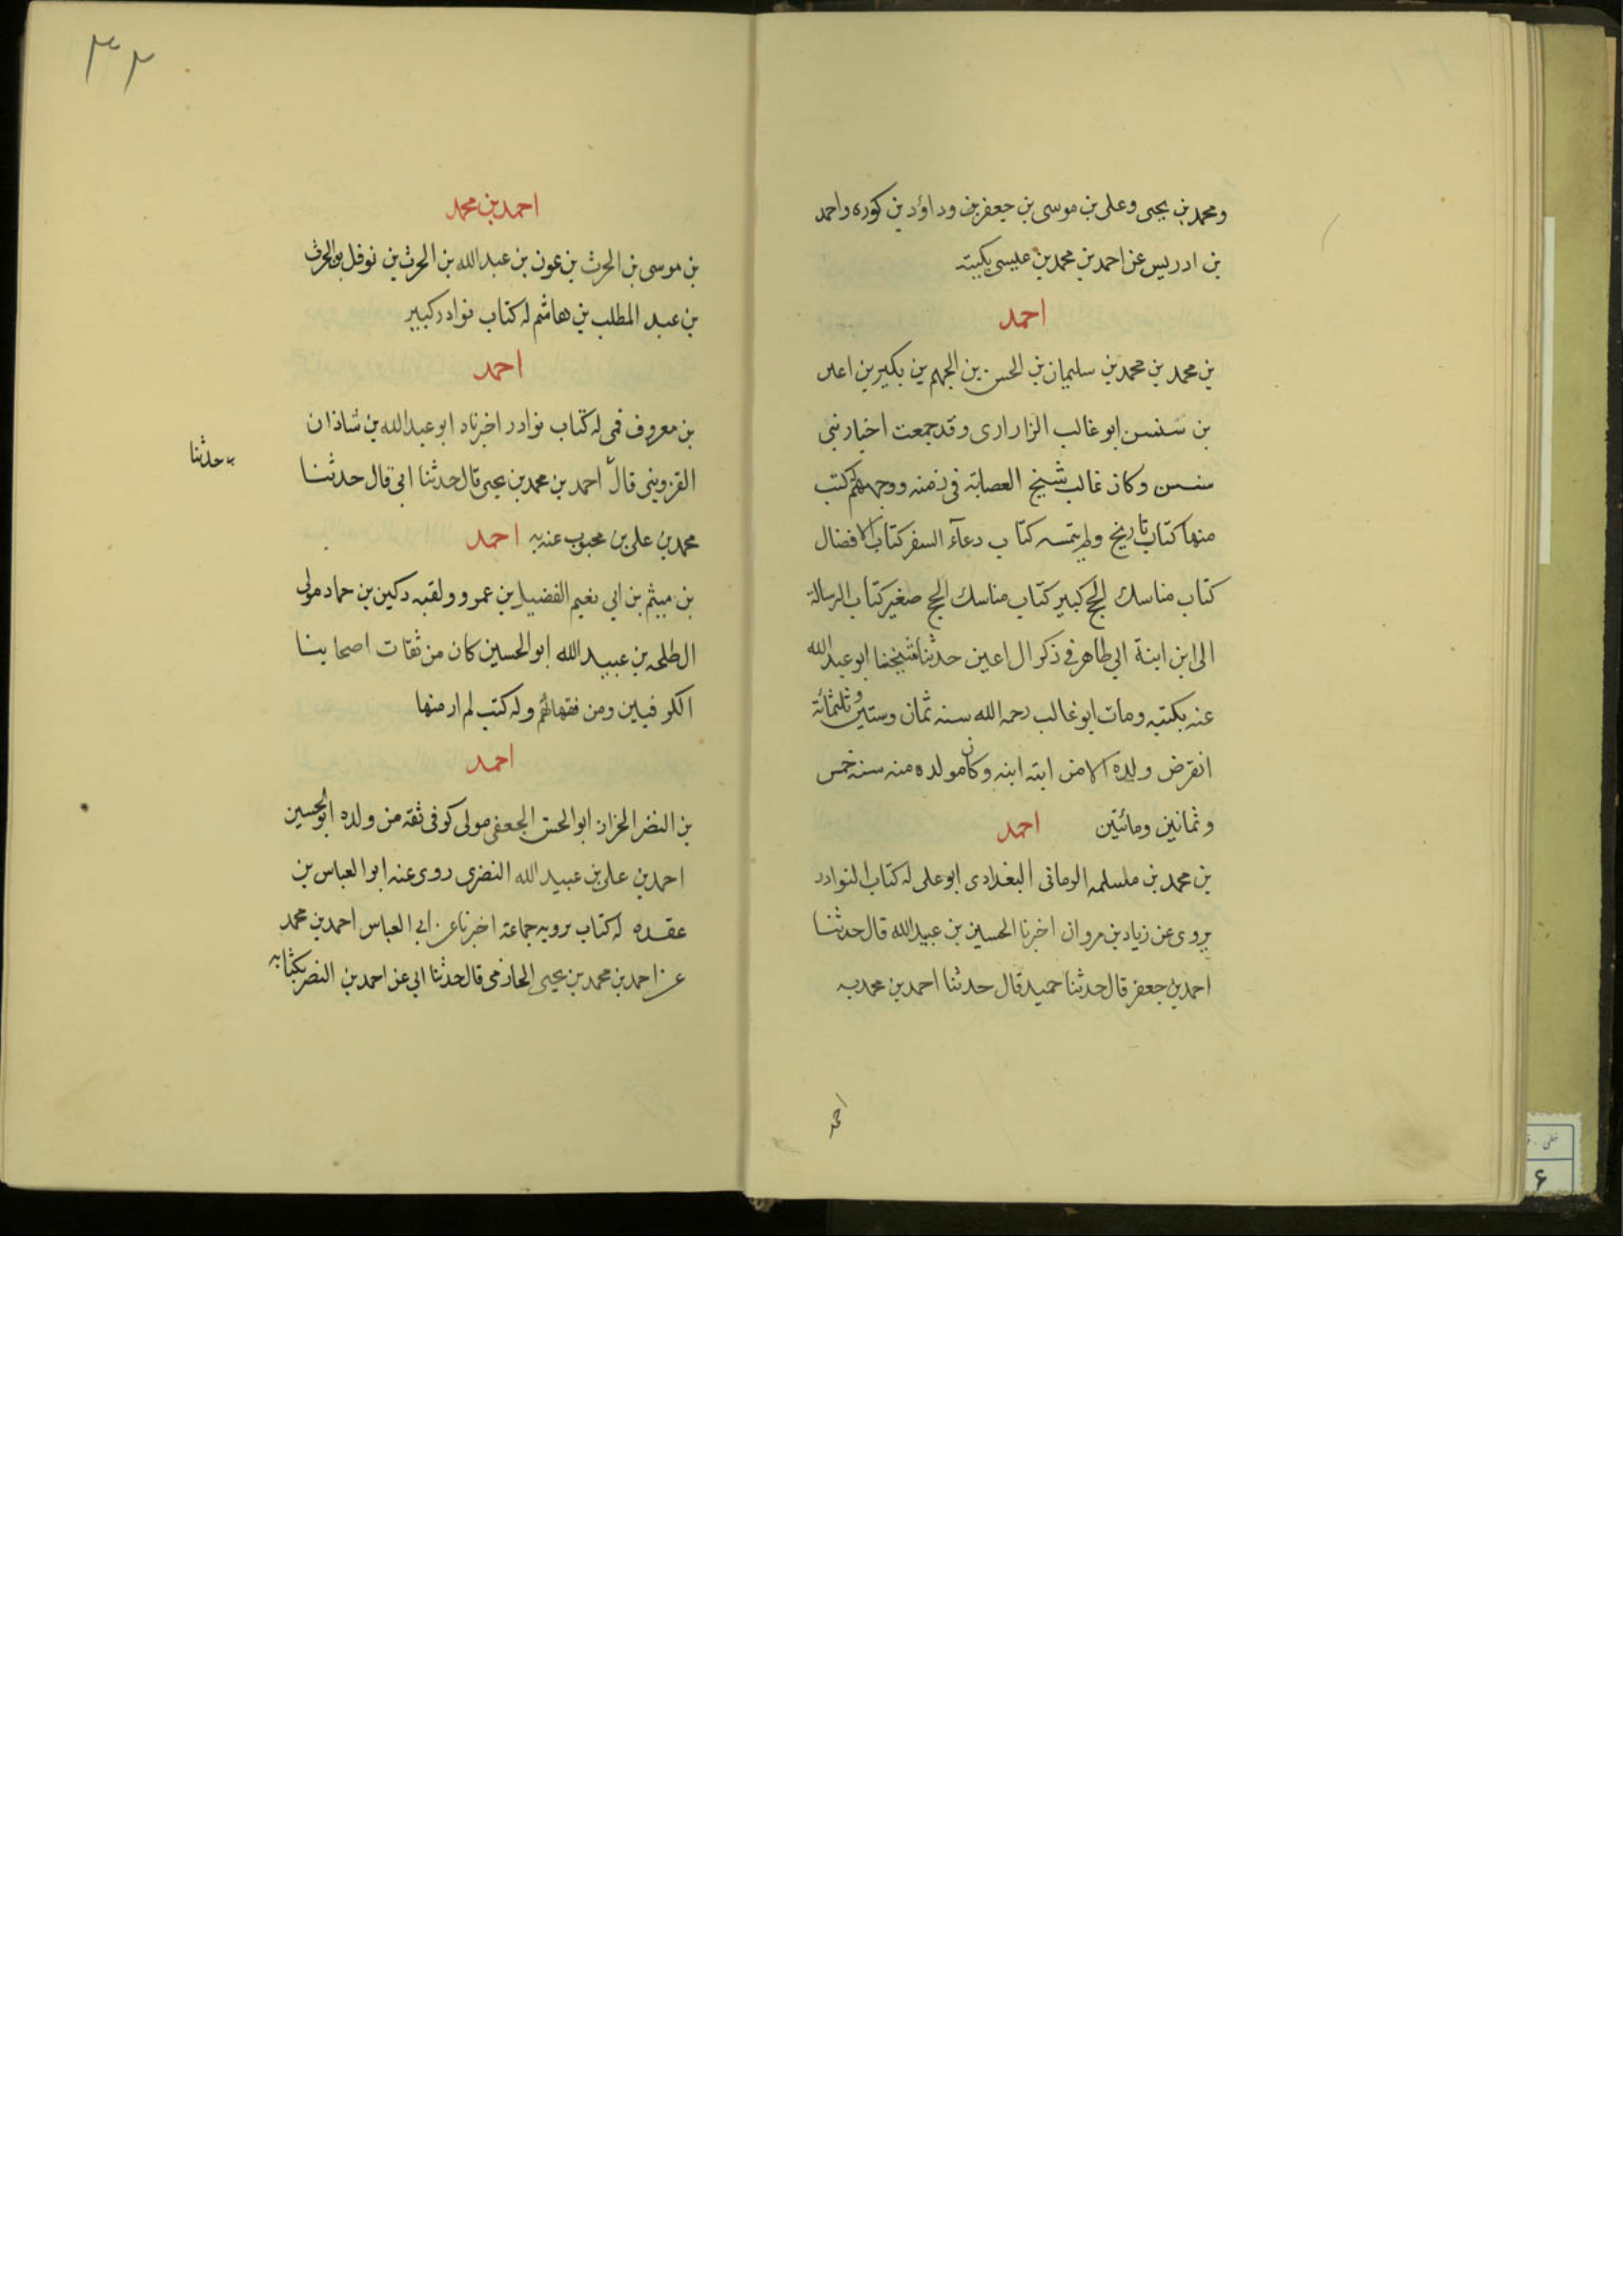 ومحمد بن يحيى وعلى بن موسى بن جعفر بن وداؤد بن كوره واحمد
بن ادريس عن احمد بن محمد بن عيسى بكتبه
احمد
بن محمد بن محمد بن سليمان بن الحسن بن الجهم بن بكير بن اعين
بن سنسن ابو غالب الزرارى وقد جمعت اخبار بنى
سنسن وكان غالب شيخ العصابة فى زمنه ووجههم كتب
منها كتاب تاريخ ولم يتمه كتاب دعآء السفر كتاب الافضال
كتاب مناسك الحج كبير كتاب مناسك الحج صغير كتاب الرسالة
الى ابن ابنة ابى طاهر فى ذكر ال اعين حدثنا شيخنا ابو عبد الله
عنه بكتبه ومات ابو غالب رحمه الله سنه ثمان وستين وثلثمائة
انقرض ولده الا من ابنه ابنه وكان مولده منه سنه خمس
وثمانين ومائتين احمد
بن محمد بن ملسلمه الرمانى البغدادى ابو على له كتاب النوادر
يروى عن زياد بن مروان اخبرنا الحسين بن عبيد الله قال حدثنا
احمد بن جعفر قال حدثنا حميد قال حدثنا احمد بن محمد به
احمد
٣٢
احمد بن محمد
بن موسى بن الحرث بن عون بن عبد الله بن الحرث بن نوفل بن الحرث
بن عبد المطلب بن هاشم له كتاب نوادر كبير
احمد
بن معروف قمى له كتاب نوادر اخبرناه ابو عبد الله بن شاذان
القزوينى قال احمد بن محمد بن يحيى قال حدثنا ابى قال حدثنا
حدثنا
محمد بن على بن محبوب عنه به احمد
بن ميثم بن ابى نعيم الفضيل بن عمرو ولقبه دكين بن حماد مولى
الطلحه بن عبيد الله ابو الحسين كان من ثقات اصحابنا
الكوفيين ومن فقهائهم وله كتب لم ار منها
احمد
بن النضر الخزاز ابو الحسن الجعفى مولى كوفى ثقه من ولده ابو الحسين
احمد بن على بن عبيد الله النضرى روى عنه ابو العباس بن
عقده له كتاب يرويه جماعة اخبرنا عن ابى العباس احمد بن محمد
عن احمد بن محمد بن يحيى الحازمى قال حدثنا ابى عن احمد بن النضر بكتابه